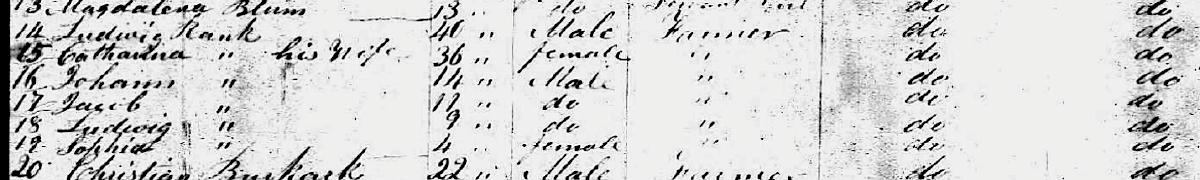 13 Magdalena Blum 13 " do Servant Girl do do
14 Ludwig Rank 40 " Male Farmer do do
15 Catharina " his Wife 36 " female " do do
16 Johann " 14 " Male " do do
17 Jacob " 12 " do " do do
18 Ludwig " 9 " do " do do
19 Sophia " 4 " female " do do
20 Christian Burkark 22 " Male Farmer do do